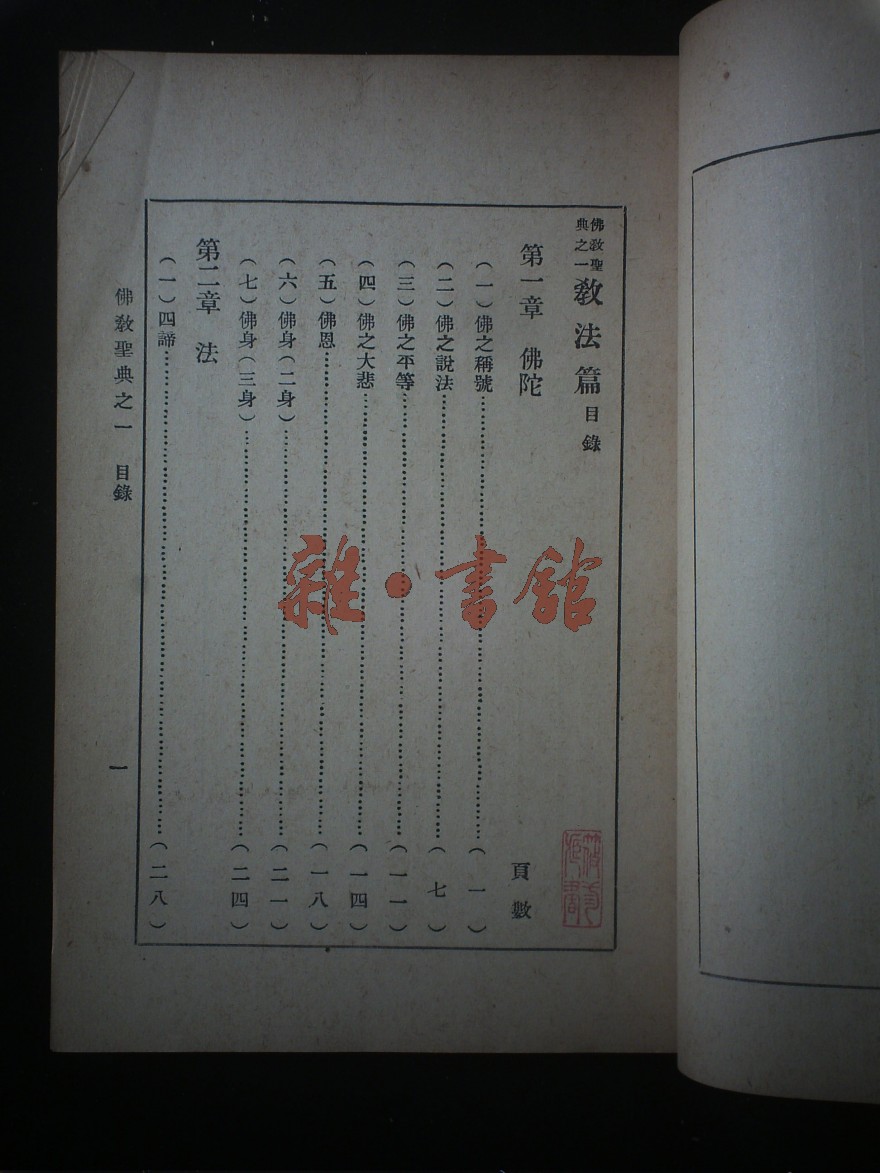 佛教聖典之一 教法篇 目錄
第一章 佛陀 頁數
(一)佛之稱號……(一)
(二)佛之說法……(七)
(三)佛之平等……(一一)
(四)佛之大悲……(一四)
(五)佛恩……(一八)
(六)佛身(二身)……(二一)
(七)佛身(三身)……(二四)
第二章 法
(一)四諦……(二八)
佛教聖典之一 目錄 一
雜·書館